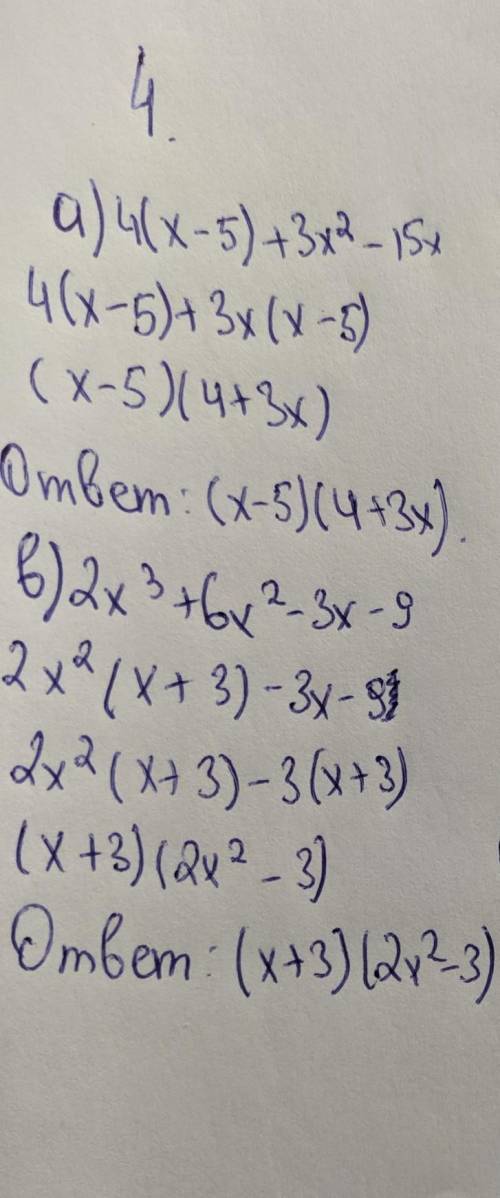 4.
а) 4(x-5)+3x²-15x
4(x-5)+3x(x-5)
(x-5)(4+3x)
Ответ: (x-5)(4+3x).
в) 2x³+6x²-3x-9
2x²(x+3)-3x-9
2x²(x+3)-3(x+3)
(x+3)(2x²-3)
Ответ: (x+3)(2x²-3)